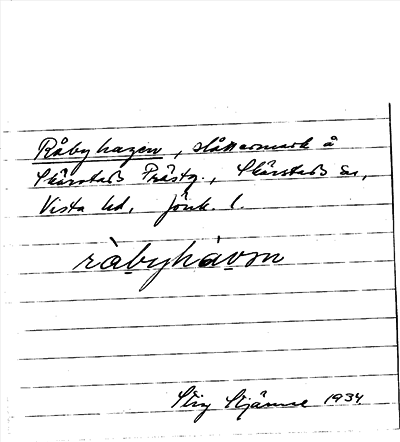 Råbyhagen, slåttermark å
Skärstads Prästg., Skärstads sn,
Vista hd, Jönk. l.
ràbyhávan
Stig Stjärne 1934